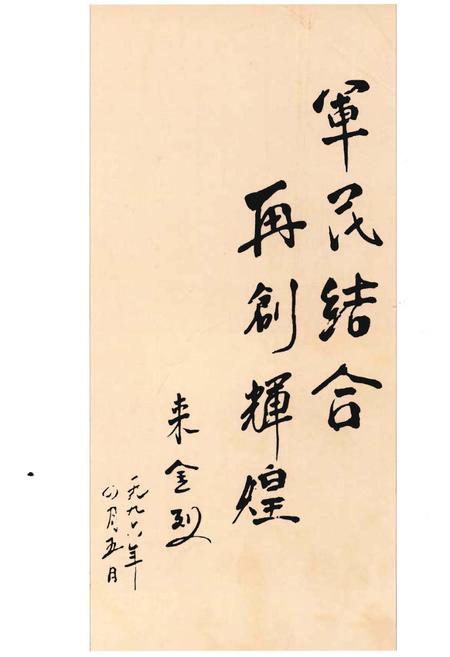 軍民結合
再創輝煌
来金烈
一九九六年
四月五日